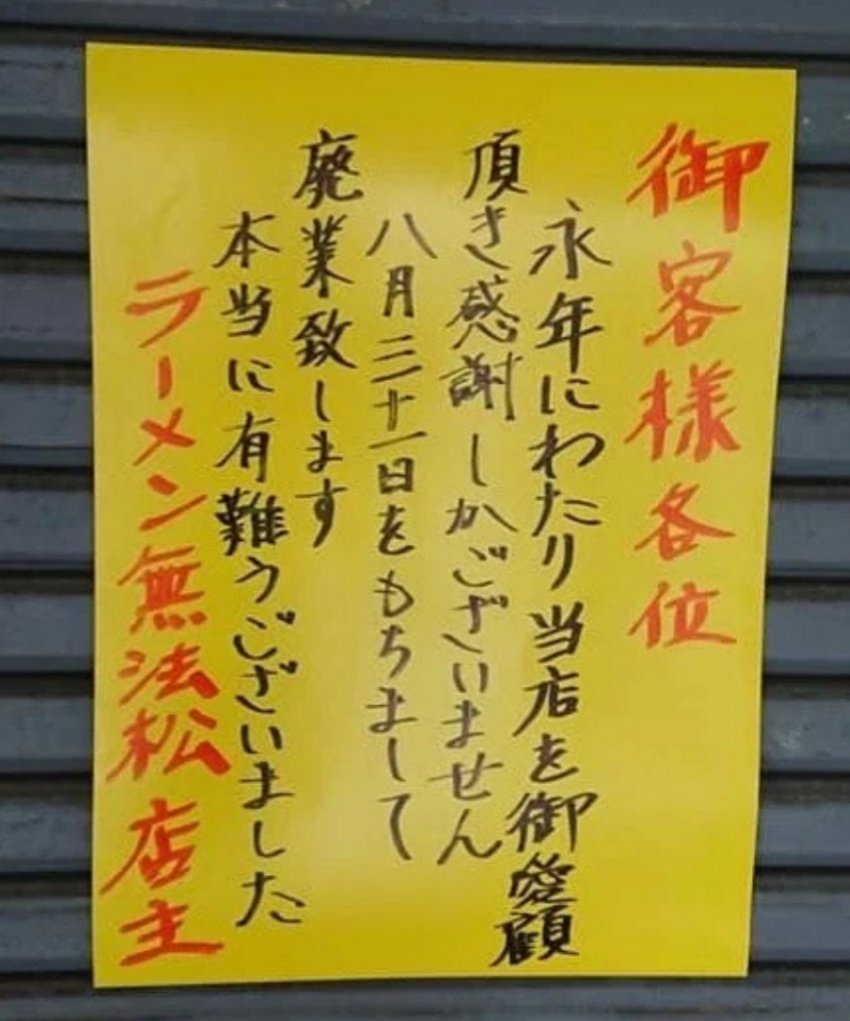 御客様各位
永年にわたり当店を御愛顧
頂き感謝しかございません
八月三十一日をもちまして
廃業致します
本当に有難うございました
ラーメン無法松店主